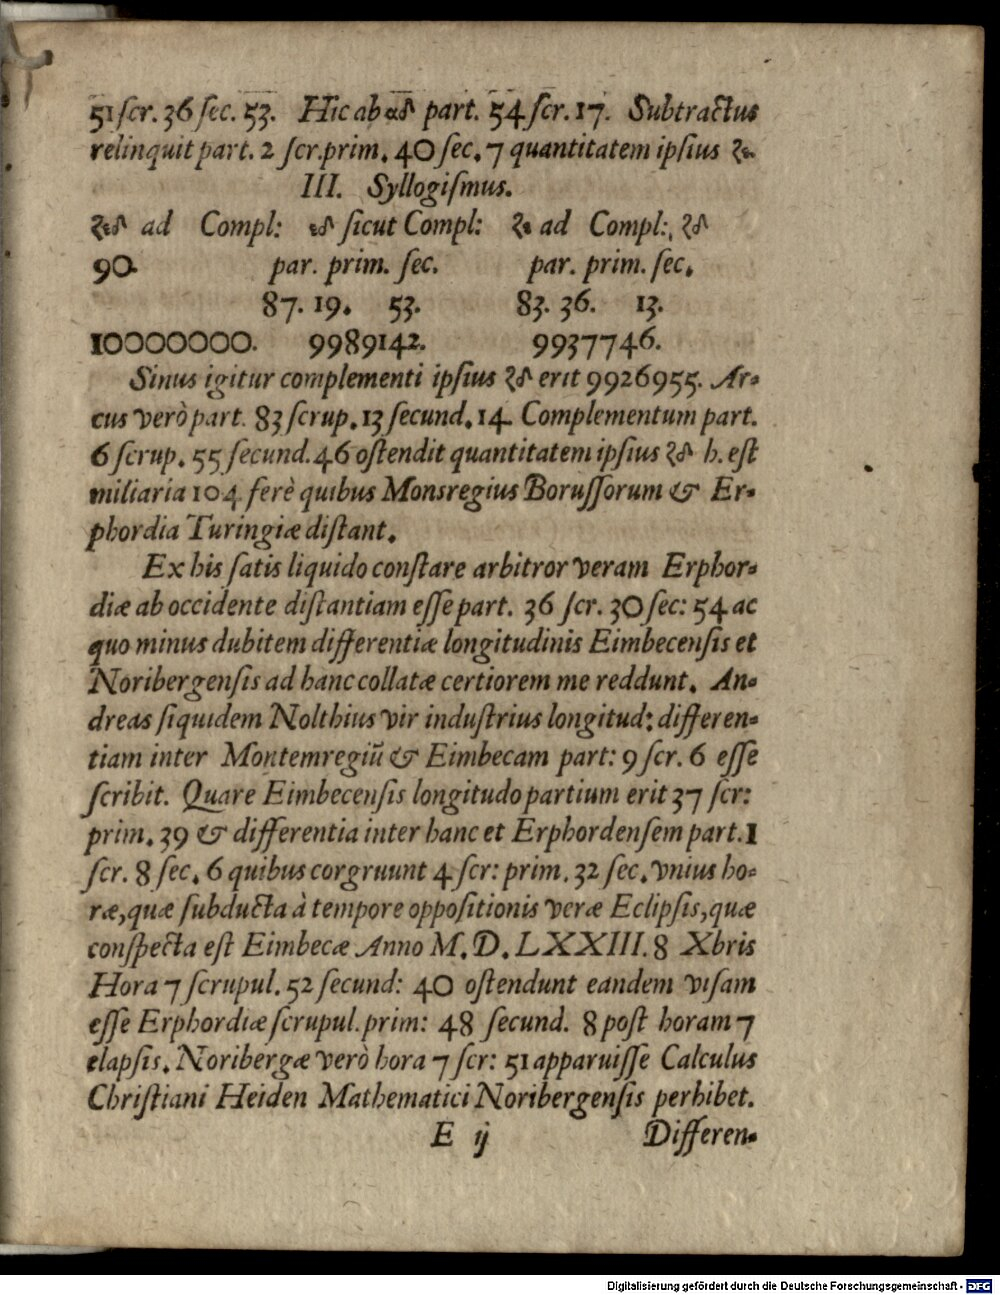 51 ſcr. 36 ſec. 53. Hic ab αδ part. 54 ſcr. 17. Subtractus
relinquit part. 2 ſcr.prim. 40 ſec. 7 quantitatem ipſius ζε
III. Syllogiſmus.
ζεδ ad Compl: εδ ſicut Compl: ζε ad Compl: ζδ
90. par. prim. ſec. par. prim. ſec.
87. 19. 53. 83. 36. 13.
10000000. 9989142. 9937746.
Sinus igitur complementi ipſius ζδ erit 9926955. Ar-
cus verò part. 83 ſcrup. 13 ſecund. 14. Complementum part.
6 ſcrup. 55 ſecund. 46 oſtendit quantitatem ipſius ζδ h. eſt
miliaria 104 ferè quibus Monsregius Boruſſorum & Er-
phordia Turingiæ diſtant.
Ex his ſatis liquido conſtare arbitror veram Erphor-
diæ ab occidente diſtantiam eſſe part. 36 ſcr. 30 ſec: 54 ac
quo minus dubitem differentiæ longitudinis Eimbecenſis et
Noribergenſis ad hanc collatæ certiorem me reddunt. An-
dreas ſiquidem Nolthius vir induſtrius longitud: differen-
tiam inter Montemregiũ & Eimbecam part: 9 ſcr. 6 eſſe
ſcribit. Quare Eimbecenſis longitudo partium erit 37 ſcr:
prim. 39 & differentia inter hanc et Erphordenſem part. 1
ſcr. 8 ſec. 6 quibus corgruunt 4 ſcr: prim. 32 ſec. vnius ho-
ræ, quæ ſubducta à tempore oppoſitionis veræ Eclipſis, quæ
conſpecta eſt Eimbecæ Anno M. D. LXXIII. 8 Xbris
Hora 7 ſcrupul. 52 ſecund: 40 oſtendunt eandem viſam
eſſe Erphordiæ ſcrupul. prim: 48 ſecund. 8 poſt horam 7
elapſis. Noribergæ verò hora 7 ſcr: 51 apparuiſſe Calculus
Chriſtiani Heiden Mathematici Noribergenſis perhibet.
E ij Differen-
Digitalisierung gefördert durch die Deutsche Forschungsgemeinschaft - DFG